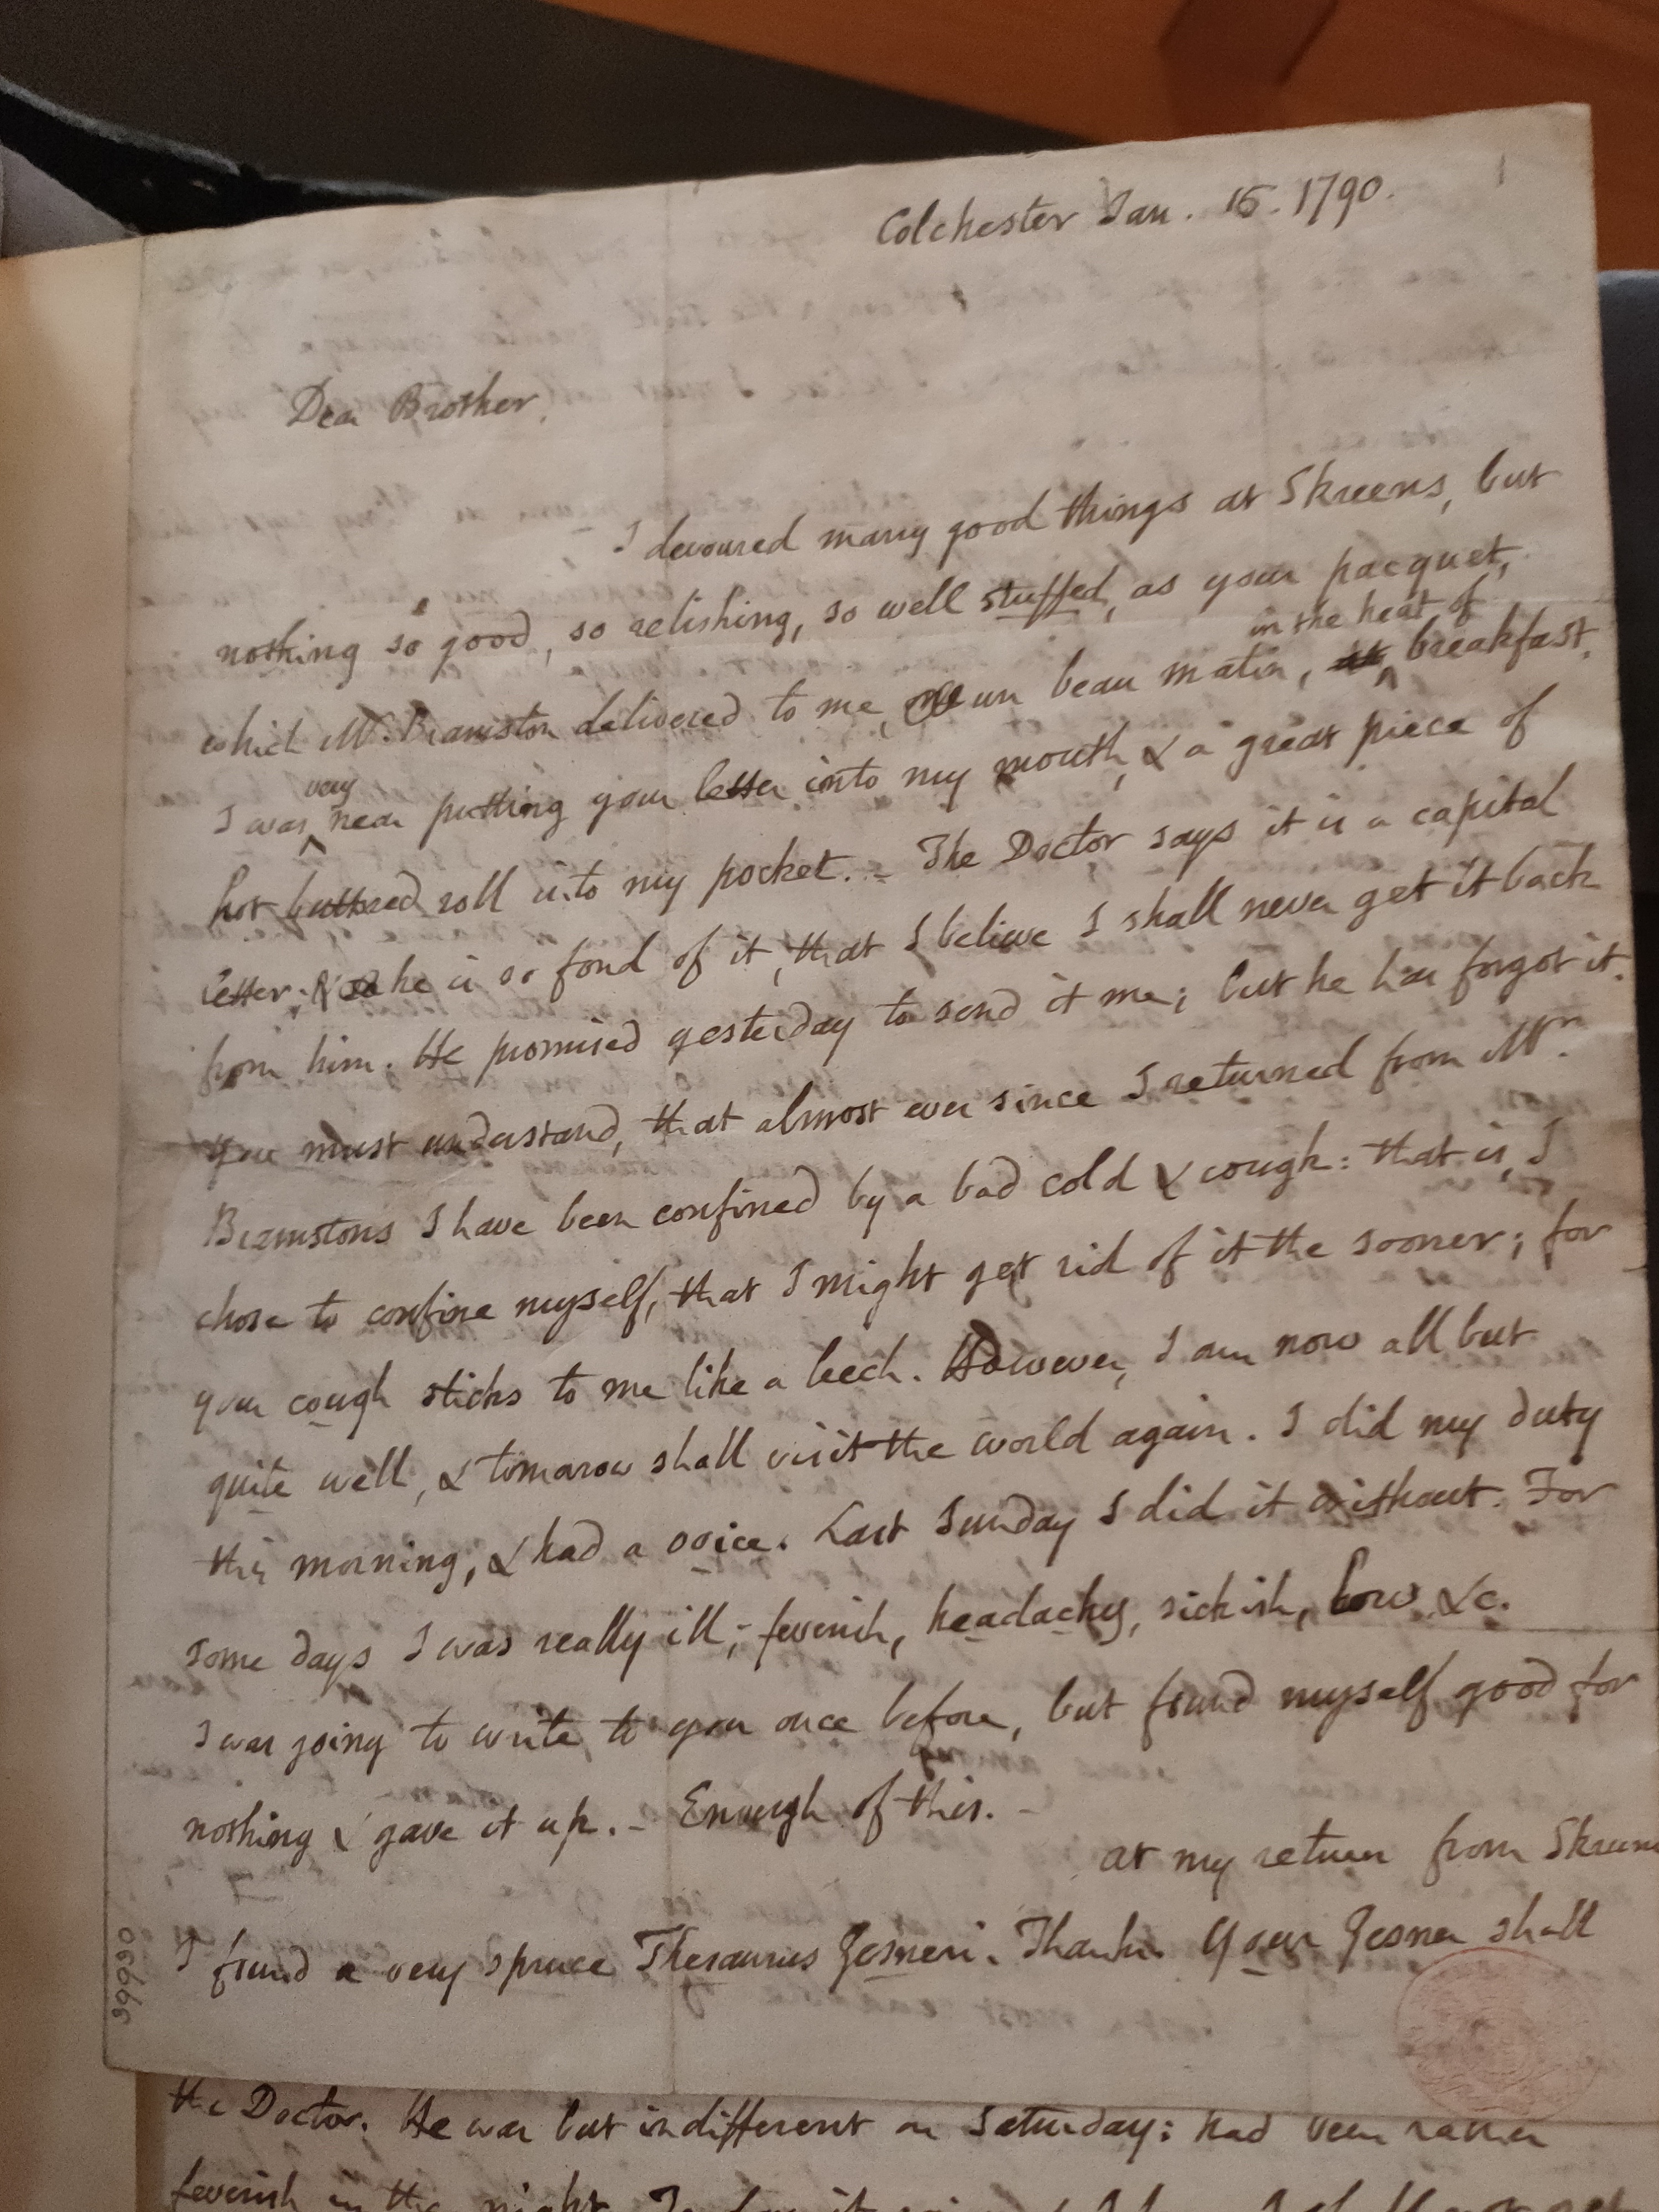 Colchester Jan. 16. 1790.
Dear Brother,
I devoured many good things at Skreens, but
nothing so good, so relishing, so well stuffed, as your pacquet,
in the heat of
which Mr. Bramston delivered to me, un beau matin, at breakfast.
very
I was near putting your letter into my mouth, & a great piece of
hot buttered roll into my pocket. - The Doctor says it is a capital
letter; & he is so fond of it, that I believe I shall never get it back
from him. He promised yesterday to send it me; but he has forgot it.
you must understand, that almost ever since I returned from Mr.
Bramstons I have been confined by a bad cold & cough: that is, I
chose to confine myself, that I might get rid of it the sooner; for
your cough sticks to me like a leech. However, I am now all but
quite well, & tomarow shall visit the world again. I did my duty
this morning, & had a voice. Last Sunday I did it without. For
some days I was really ill; feverish, headachy, sickish, low &c.
I was going to write to you once before, but found myself good for
nothing & gave it up. - Enough of this. -
at my return from Skreens
I found a very spruce Thesaurus Gesneri. Thanks. Your Gesner shall
39930
the Doctor. He was but indifferent on Saturday: had been rather
feverish in the night. To day it